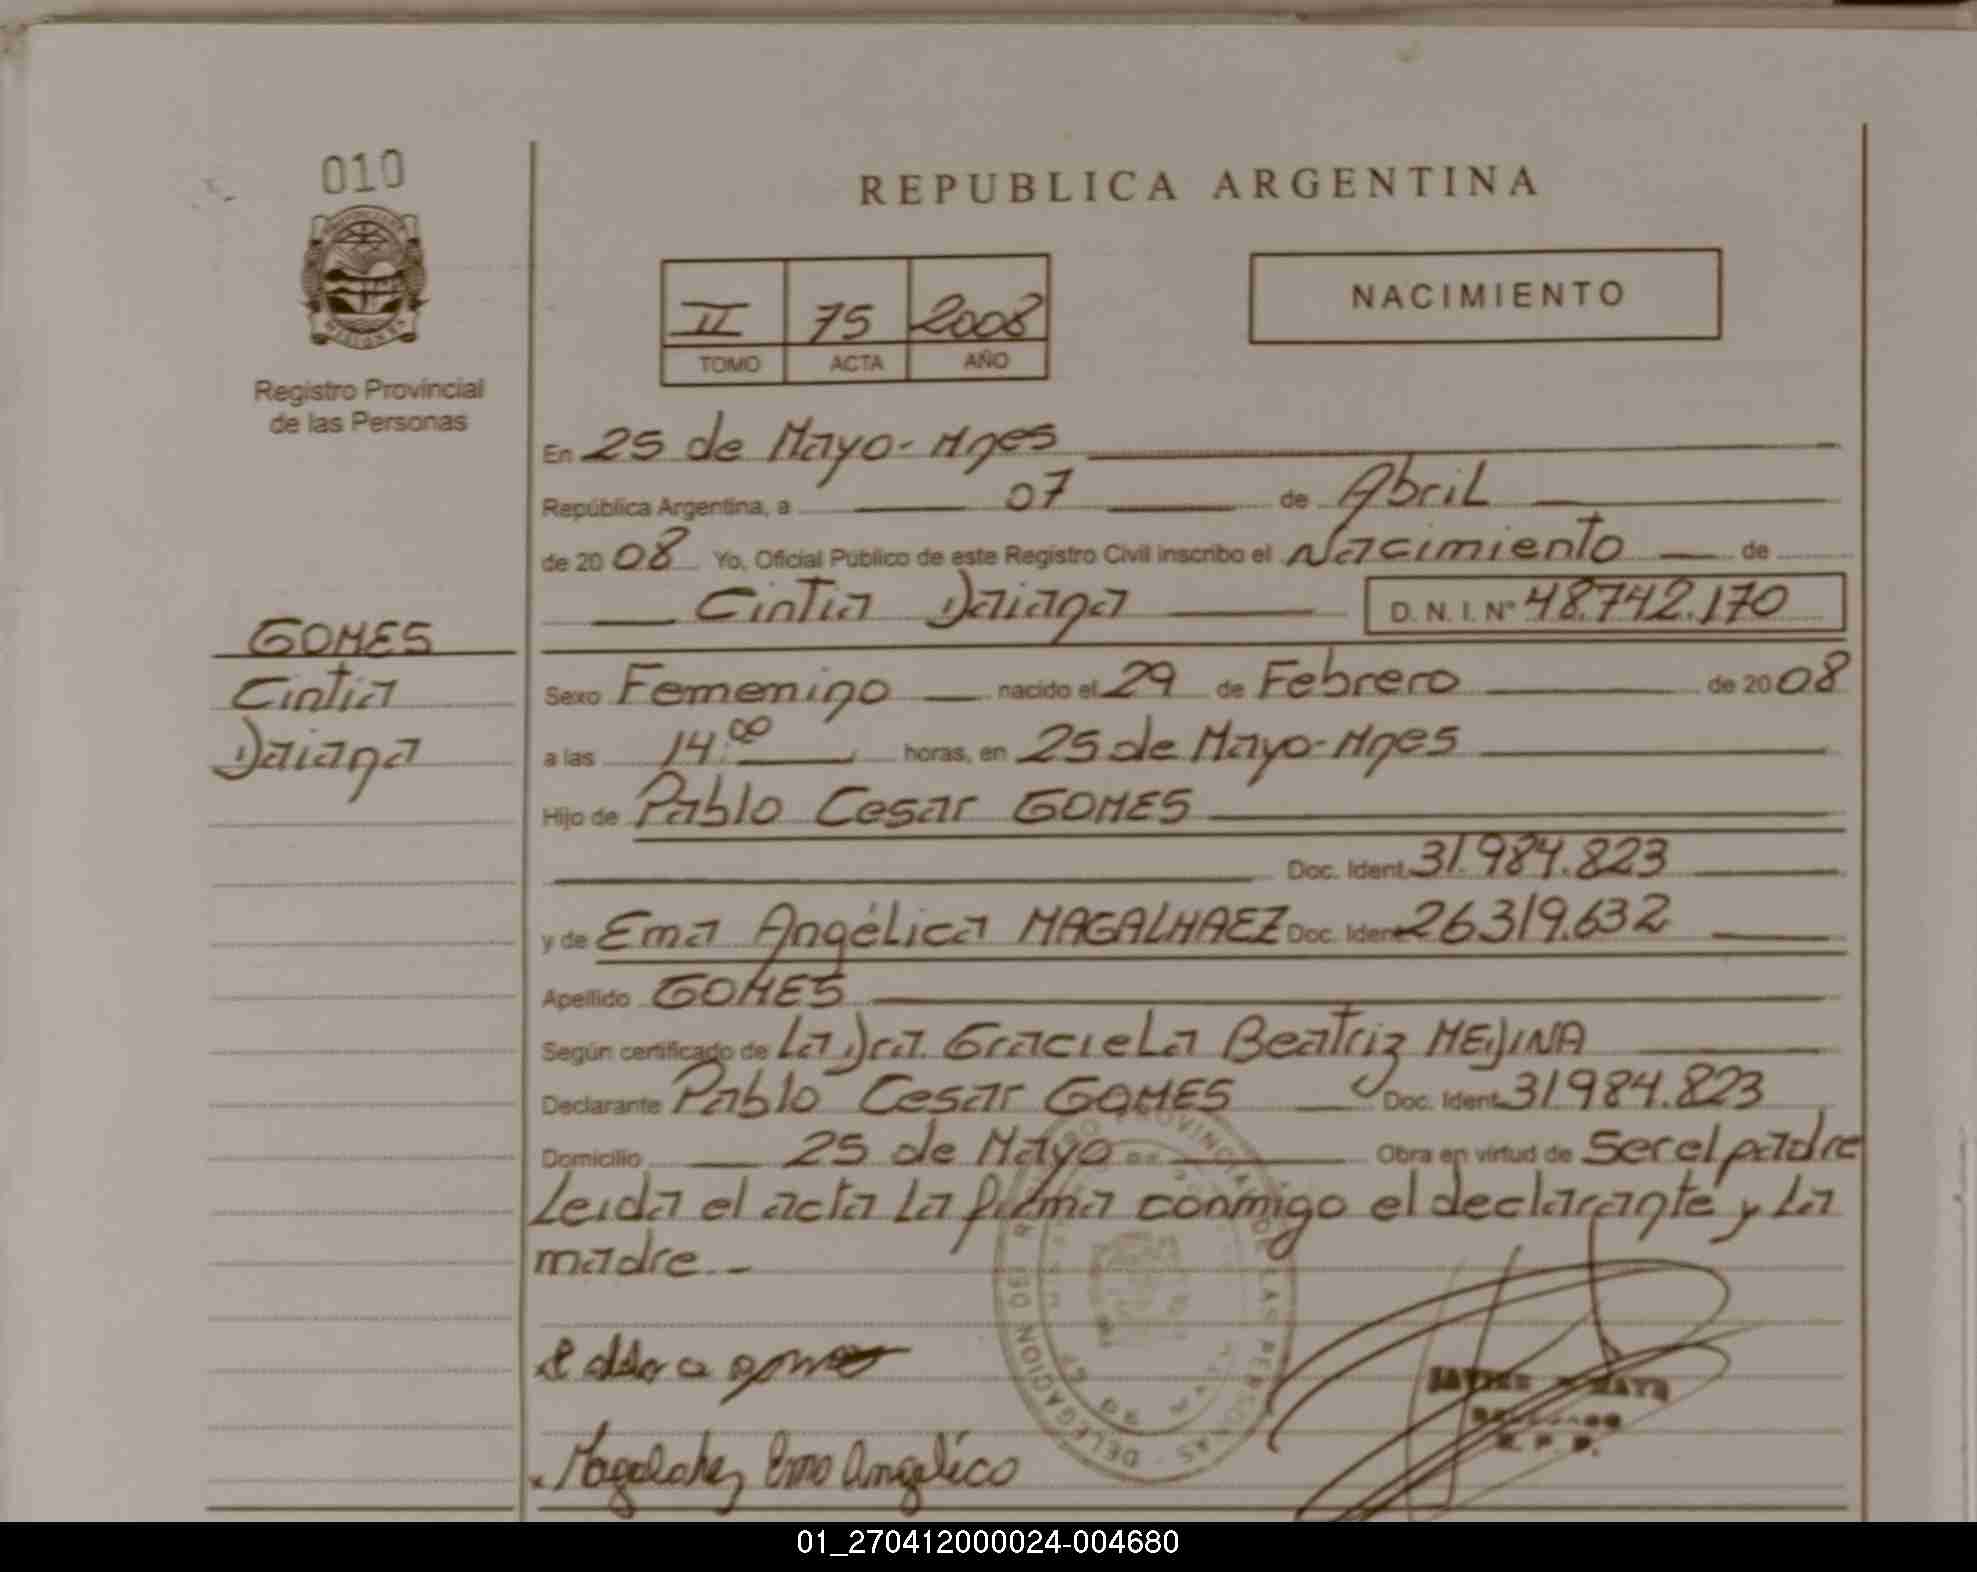 010
REPUBLICA ARGENTINA
NACIMIENTO
II 75 2008
TOMO ACTA AÑO
Registro Provincial
de las Personas
En 25 de Mayo - Mnes
República Argentina, a 07 de Abril
de 20 08 Yo, Oficial Público de este Registro Civil inscribo el Nacimiento de
Cintia Daiana D. N. I. Nº 48.742.170
GOMES
Cintia
Daiana
Sexo Femenino nacido el 29 de Febrero de 20 08
a las 14.00 horas, en 25 de Mayo - Mnes
Hijo de Pablo Cesar GOMES
Doc. Ident. 31.984.823
y de Ema Angélica MAGALHAEZ Doc. Ident. 26.319.632
Apellido GOMES
Según certificado de La Dra. Graciela Beatriz MEDINA
Declarante Pablo Cesar GOMES Doc. Ident. 31984.823
Domicilio 25 de Mayo Obra en virtud de Ser el padre
Leida el acta La firma conmigo el declarante y La
madre. -
REGISTRO PROVINCIAL DE LAS PERSONAS - DELEGACION
R. P. P.
Ema Angélica
01_270412000024-004680